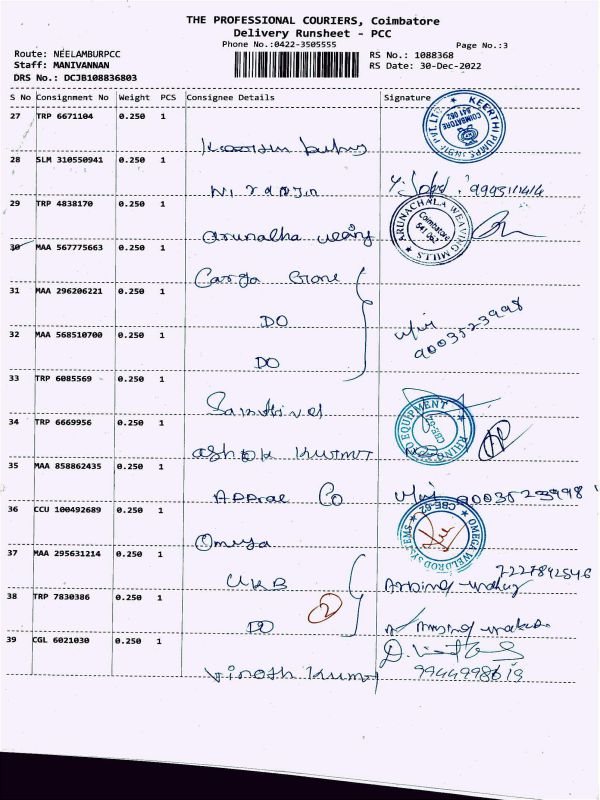 THE PROFESSIONAL COURIERS, Coimbatore
Delivery Runsheet - PCC
Phone No.:0422-3505555 Page No.:3
Route: NEELAMBURPCC RS No.: 1088368
Staff: MANIVANNAN RS Date: 30-Dec-2022
DRS No.: DCJB108836803
S No Consignment No Weight PCS Consignee Details Signature
27 TRP 6671104 0.250 1
KEERTHI PUMPS PVT. LTD. COIMBATORE 641 062
28 SLM 310550941 0.250 1
Niranjin
29 TRP 4838170 0.250 1
ARUNACHALA WEAVING MILLS Coimbatore 641 062
30 MAA 567775663 0.250 1
31 MAA 296206221 0.250 1
DO
9003523998
32 MAA 568510700 0.250 1
DO
33 TRP 6085569 0.250 1
Santhivel
EQUIPMENT
34 TRP 6669956 0.250 1
Ashok Kumar
35 MAA 858862435 0.250 1
Apprae Co 9003523998
36 CCU 100492689 0.250 1
Omega
OMEGA WELDROD SYSTEMS CBE-62
37 MAA 295631214 0.250 1
UKB
38 TRP 7830386 0.250 1
DO 2
39 CGL 6021030 0.250 1
Vinoth Kumar